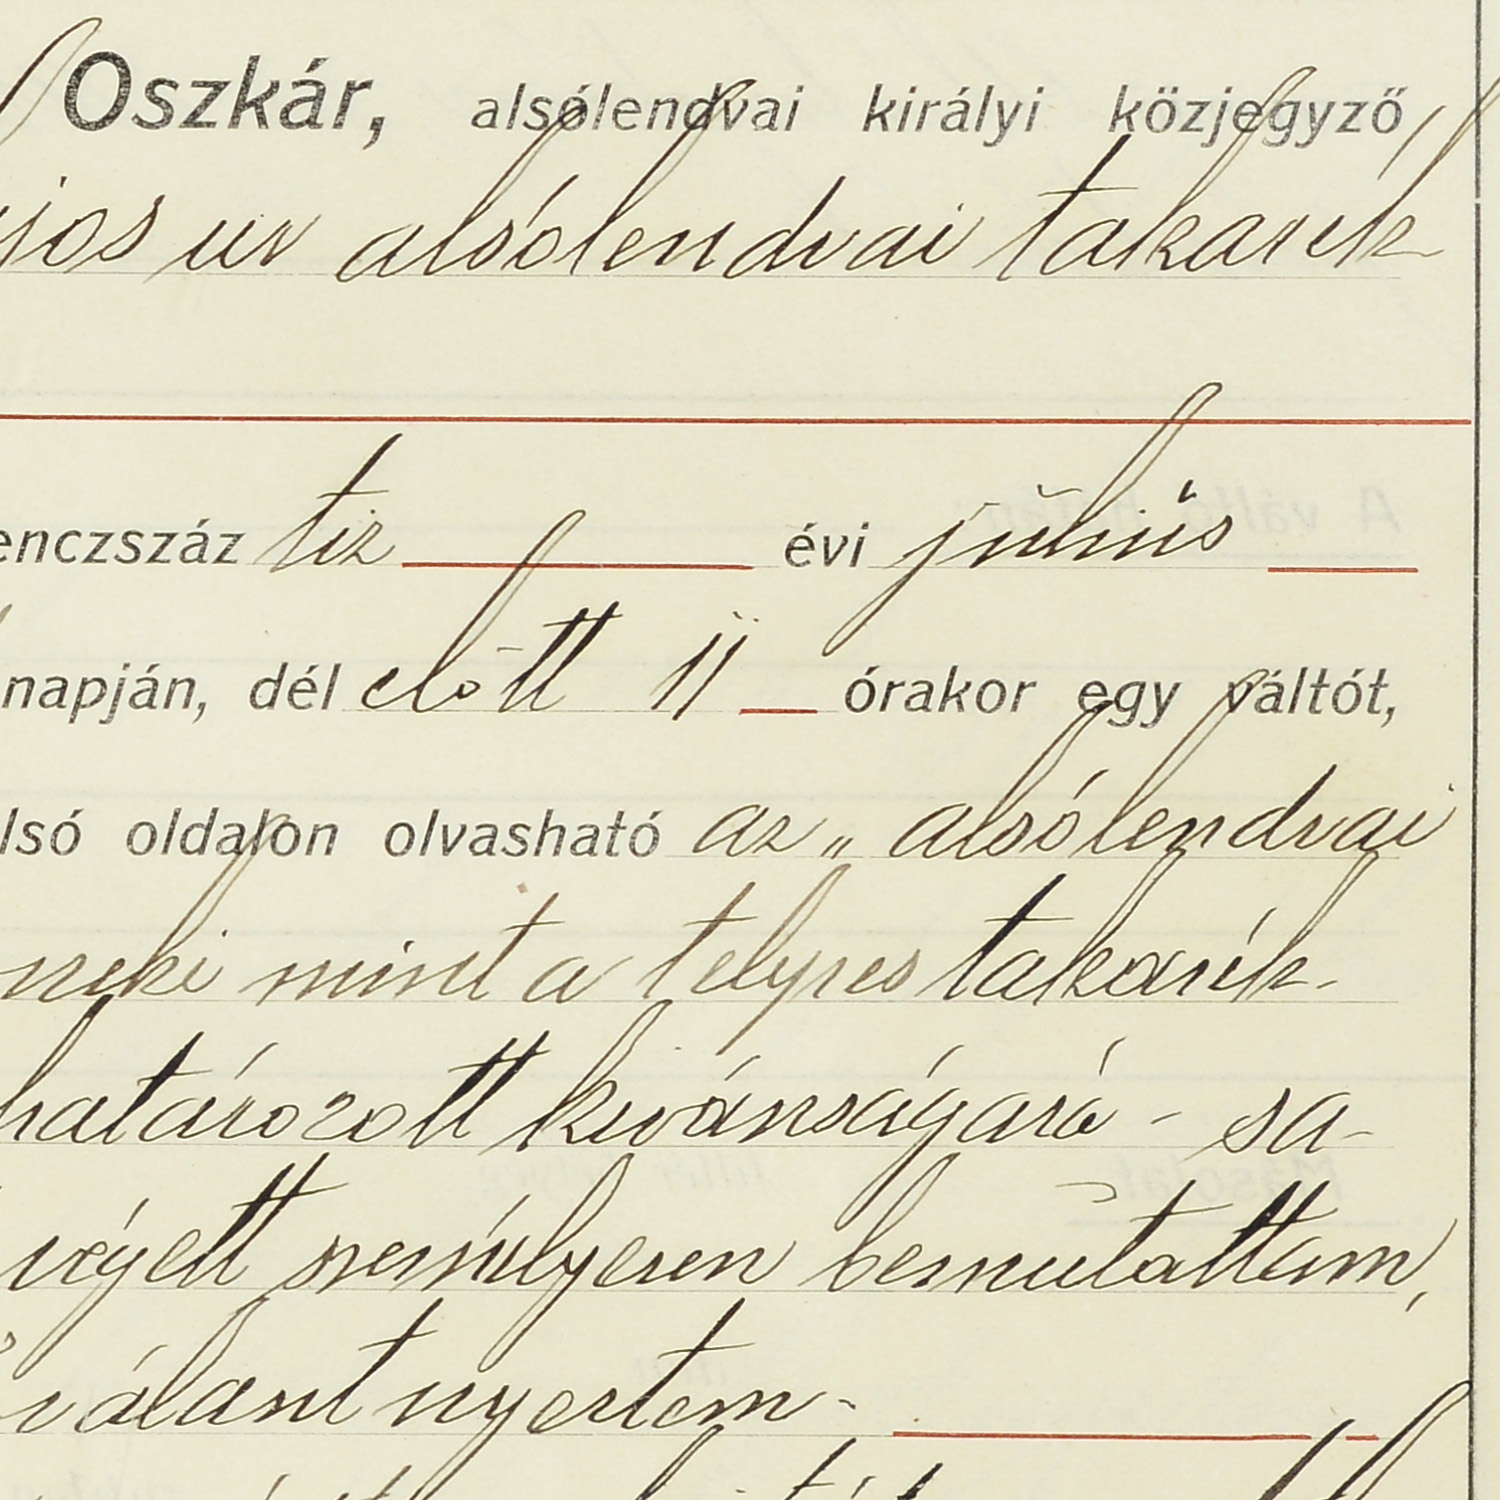 Oszkár, alsólendvai királyi közjegyző
úr alsólendvai takarék-
tiz évi július
napján, dél előtt 11 órakor egy váltót,
oldalon olvasható az „ alsólendvai
neki mint a telyes takarék-
határozott kivánságára - sa-
végett személyesen bemutattam,
választ nyertem -